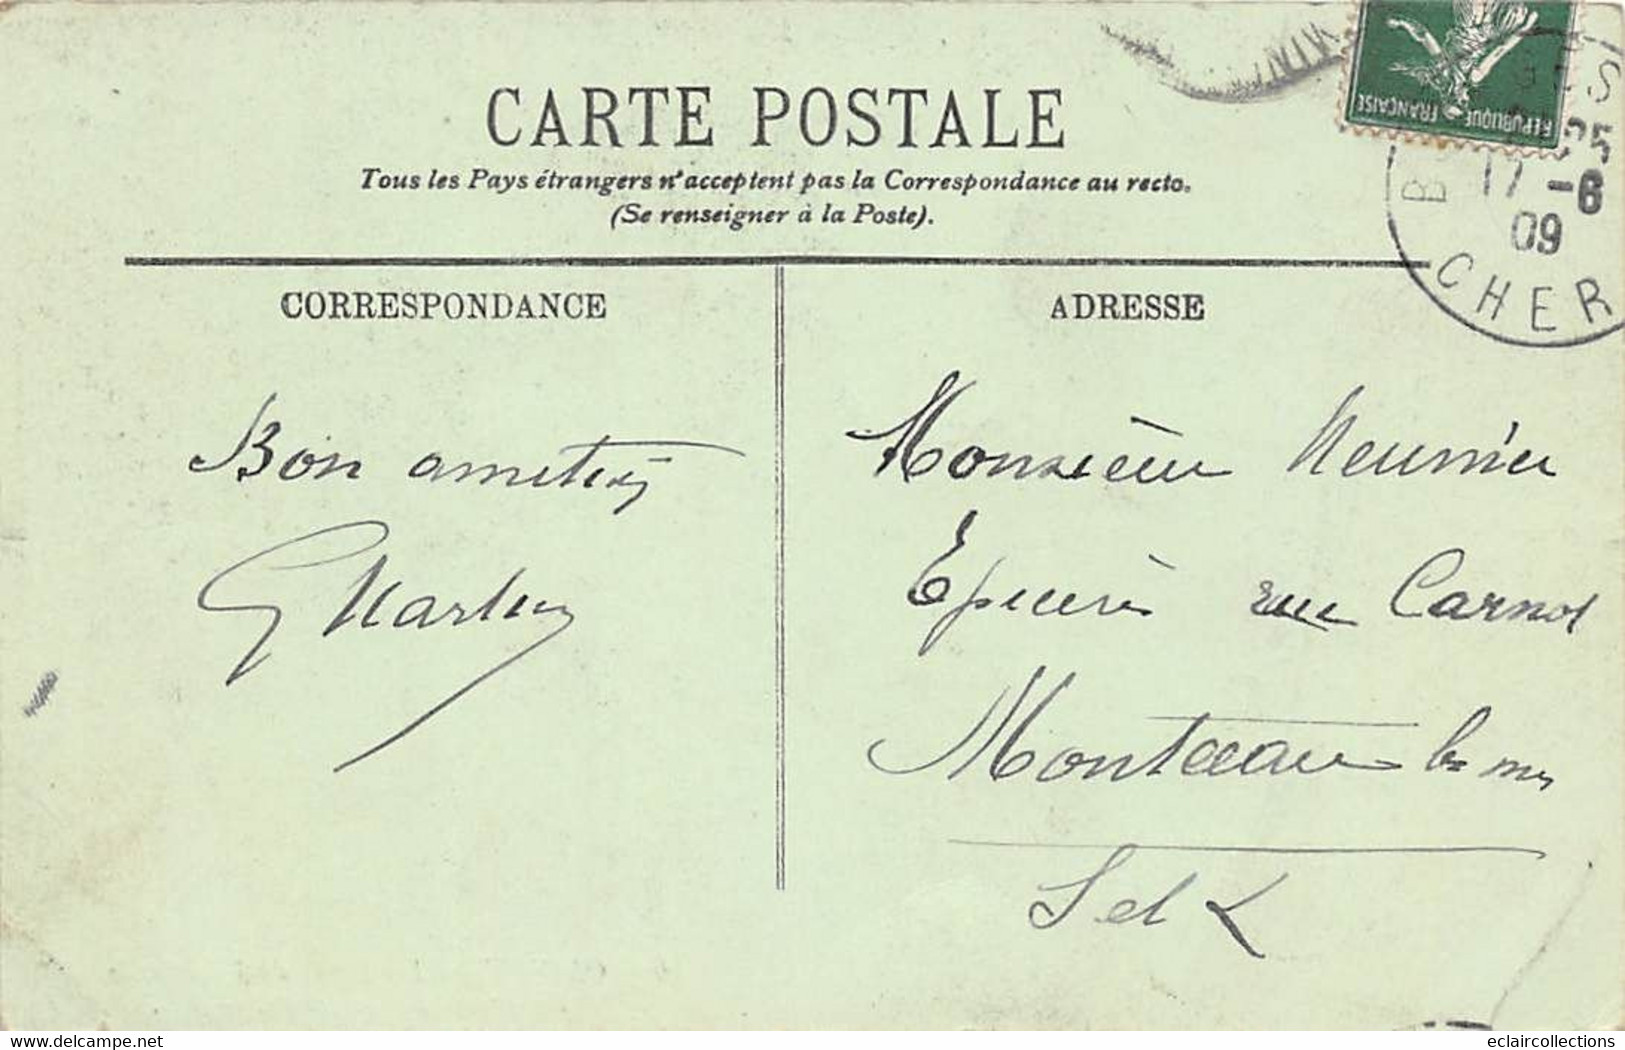 CARTE POSTALE
Tous les Pays étrangers n'acceptent pas la Correspondance au recto.
(Se renseigner à la Poste).
CORRESPONDANCE
ADRESSE
REPUBLIQUE FRANÇAISE
17 -6
09
CHER
Bon
G Martin
Monsieur Meunier
Epicerie rue Carnot
Montceau les mines
S et L
delcampe.net
eclaircollections